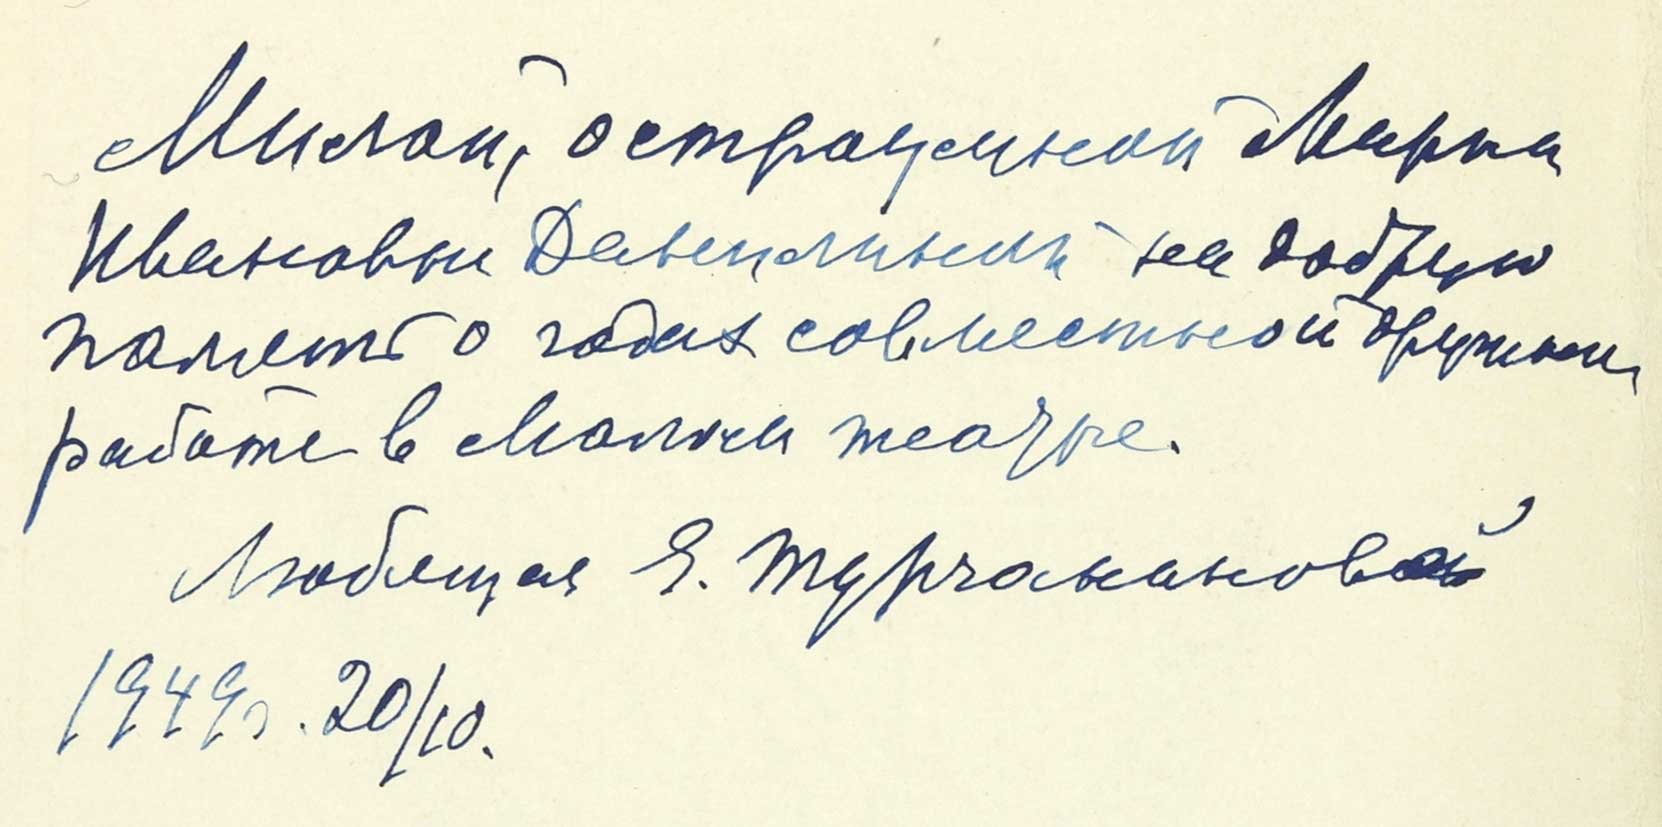 Милой, остроумной Марии
Ивановны Данилиной на добрую
память о годах совместной дружной
работе в Малом театре.
Любящая Е. Турчанинова
1949 г. 20/10.